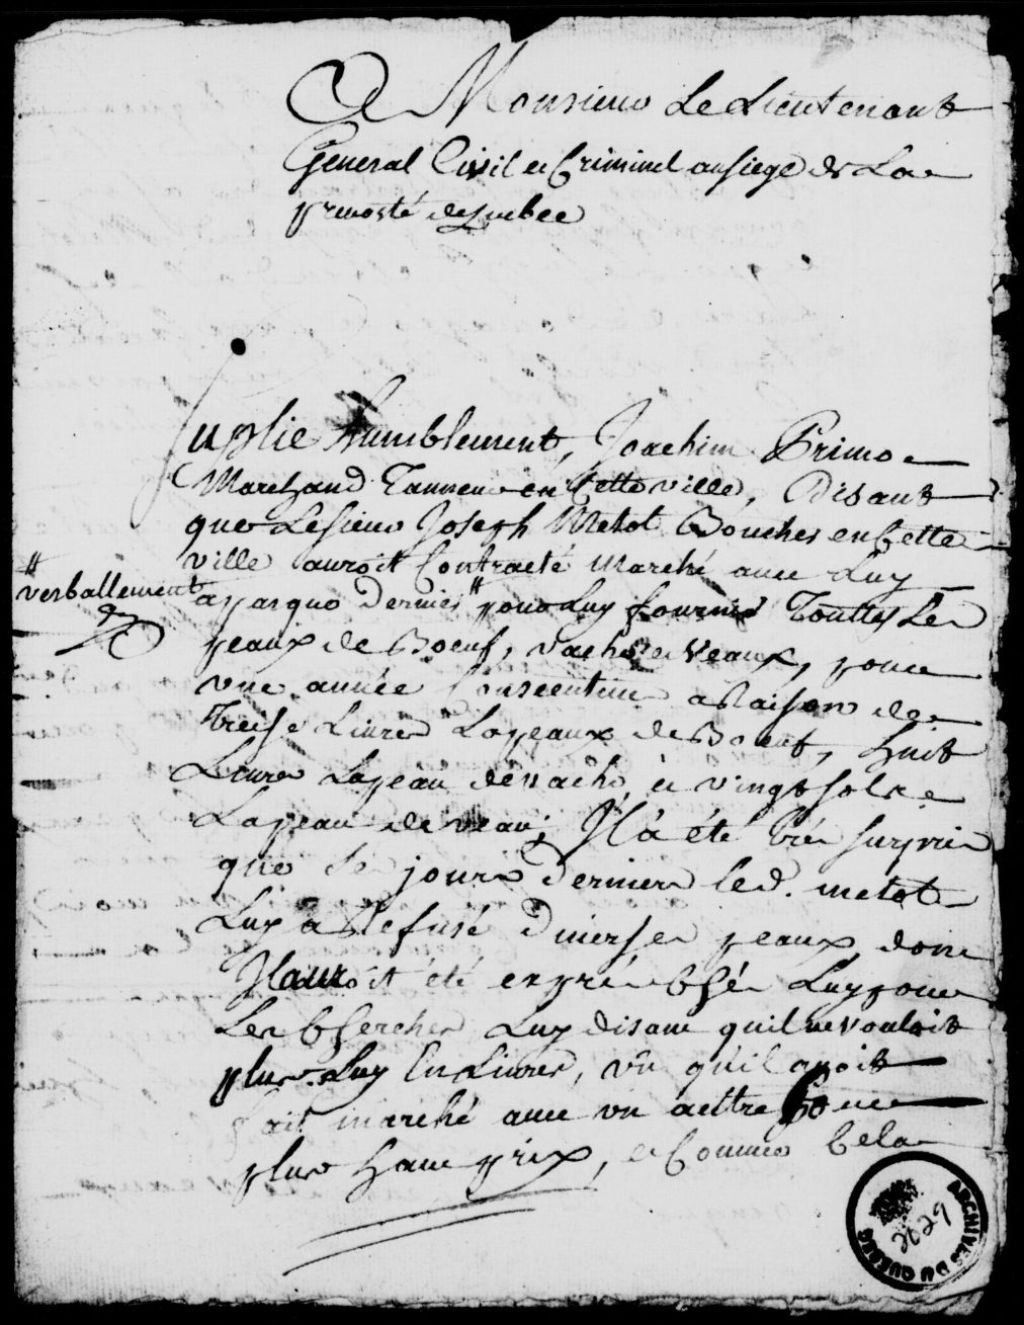 A Monsieur Le Lieutenant
General Civil et Criminel au siege de La
prevosté de Quebec
Suplie humblement, Joachim Primo
Marchand Tanneur en Cette ville, Disant
que Le sieur Joseph Metot Boucher en Cette
ville auroit Contracté marché avec Luy
// verballement
a pasque dernier // pour Luy fournir Touttes Les
peaux de Boeuf, vaches et veaux, pour
une année Consecutive a Raison de
Treise Livres La peaux de Boeuf, huit
Livres La peau de vache, et vingt sols
La peau de veau; Il a été très surpris
que Ses jours derniers led. metot
Luy a Refusé diverses peaux, dont
Il auroit été exprès chés Luy pour
Les chercher Luy disant quil ne vouloit
plus Luy En Livrer, vû qu'il avoit
fait marché avec un aultre Pour
plus haut prix, et Comme Cela
ARCHIVES DU QUEBEC
2629